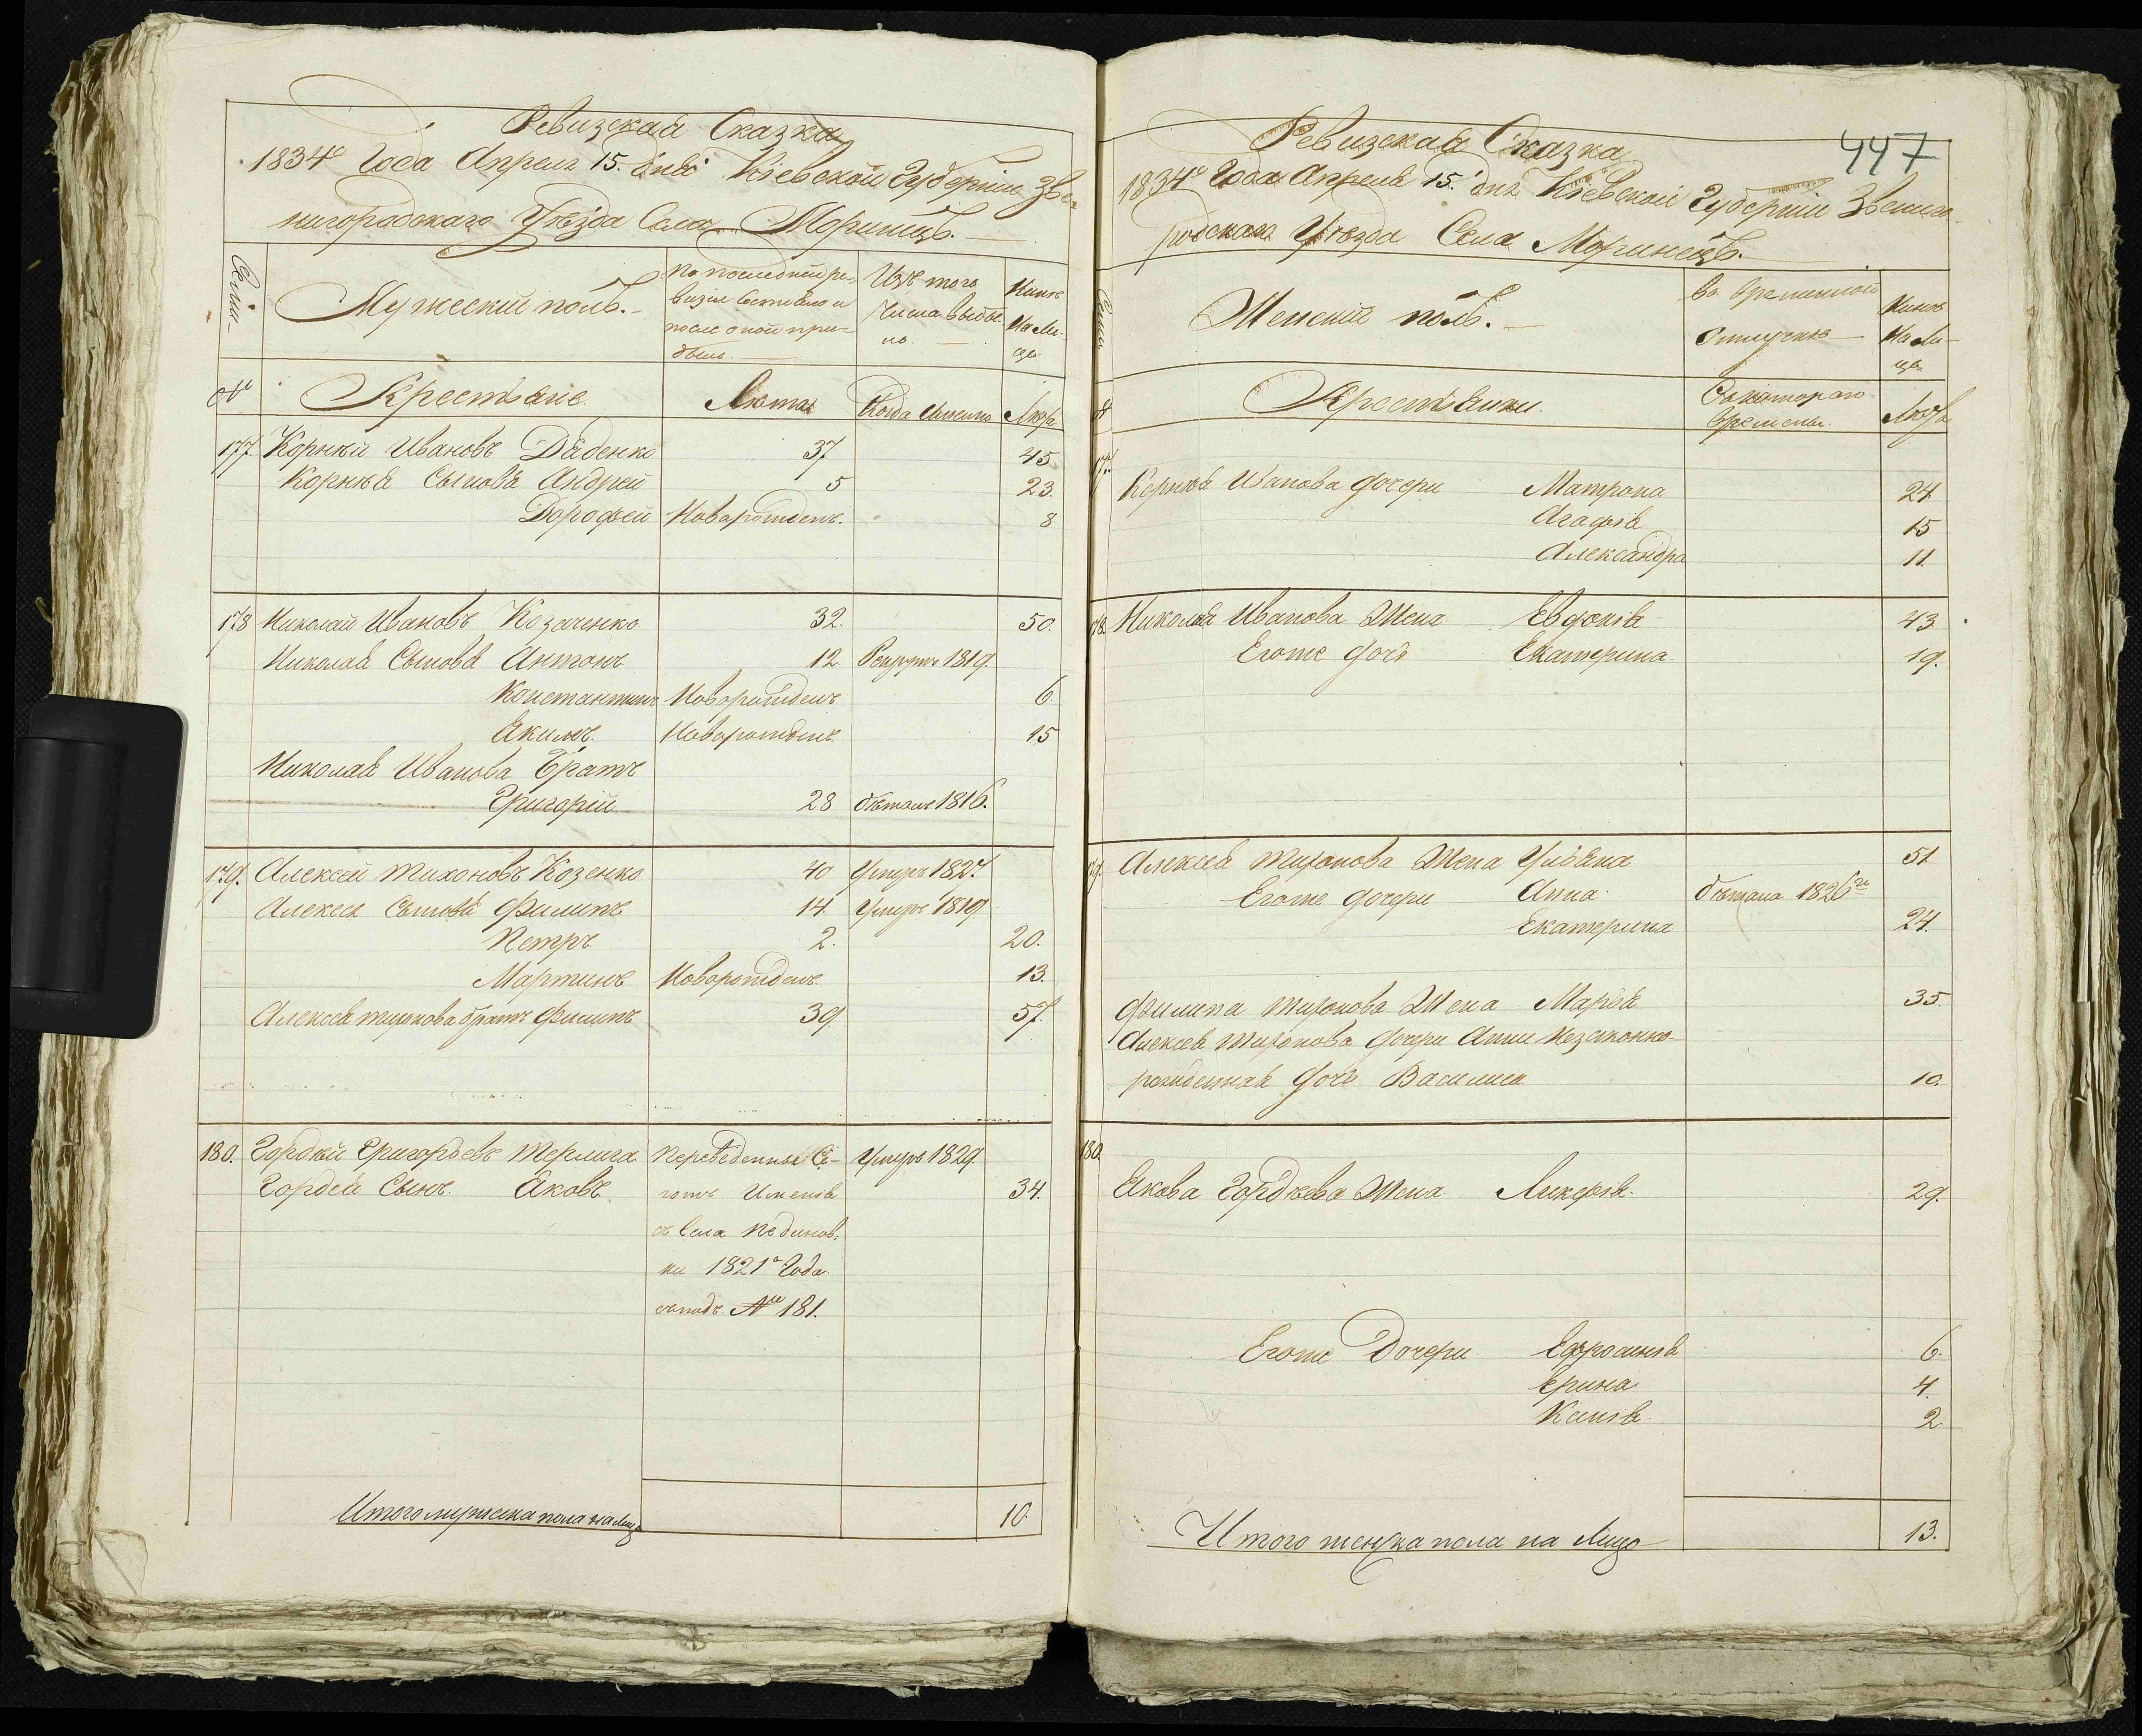 Ревизская Сказка
1834го Года Апреля 15. дня Кіевской Губерніи Зве-
нигородскаго Уѣзда Села Моринецъ.
Семьи
Мужескій полъ.
По последней ре-
визіи Состояло и
после оной при-
было.
Изъ того
Числа выбы-
ло.
Нынѣ
На Ли-
цо
№
Крестьяне
Лѣта
Когда Именно
Лѣта
177 Корнѣй Ивановъ Дяденко 37 45
Корнѣя Сыновья Андрей 5 23.
Дорофей Новорожденъ. 8
178 Николай Ивановъ Козаченко 32. 50.
Николая Сыновья Антонъ 12 Рекрутъ 1819.
Константинъ Новорожденъ 6.
Якимъ. Новорожденъ 15
Николая Иванова Братъ
Григорій 28 бѣжалъ 1816.
179. Алексей Тихоновъ Козенко 40 Умеръ 1827.
Алексея Сыновья Филипъ 14. Умеръ 1819
Петръ 2. 20.
Мартинъ Новорожденъ. 13.
Алексея Тихонова братъ Филипъ 39. 57.
180. Гордѣй Григорьевъ Терлига Переведенны Се- Умеръ 1829.
Гордея Сынъ. Яковъ. гожъ Именія 34.
съ Села Пединов-
ки 1821го Года.
съподъ № 181.
Итого мужеска пола на Лицо 10.
447
Ревизская Сказка
1834го Года Апреля 15. дня Кіевской Губерніи Звениго-
родскаго Уѣзда Села Моринецъ.
Семьи
Женскій полъ.
Во временной
Отлучкѣ
Нынѣ
На Ли-
цо
№
Крестьянки.
Съкотораго
времены.
Лѣта
177. Корнѣя Иванова дочери Матрона 24
Агафія 15
Александра 11.
178. Николая Иванова Жена Евдокія 43
Егоже дочь Екатерина 19.
179. Алексея Тихонова Жена Ульяна 51
Егоже дочери Анна бѣжала 1826го
Екатерина 24.
Филипа Тихонова Жена Марья 35.
Алексея Тихонова дочери Анны Незаконно-
рожденная дочь Василиса 10.
180.
Якова Гордѣева Жена Ликерія. 29.
Егоже Дочери Ефросинія 6.
Ерина 4.
Ксенія. 2.
Итого женска пола на Лицо 13.